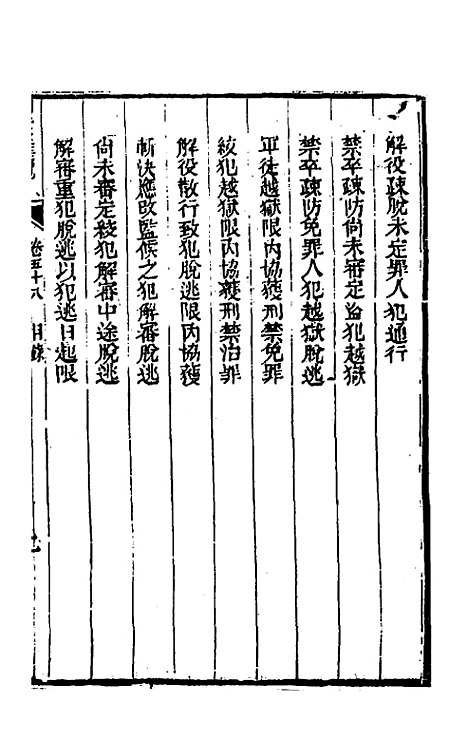 解役疎脫未定罪人犯通行
禁卒疎防尚未審定盜犯越獄
禁卒疎防免罪人犯越獄脫逃
軍徒越獄限內協獲刑禁免罪
絞犯越獄限內協獲刑禁治罪
解役散行致犯脫逃限內協獲
斬決應改監候之犯解審脫逃
尚未審定殺犯解審中途脫逃
解審重犯脫逃以犯逃日起限
卷五十八 目錄